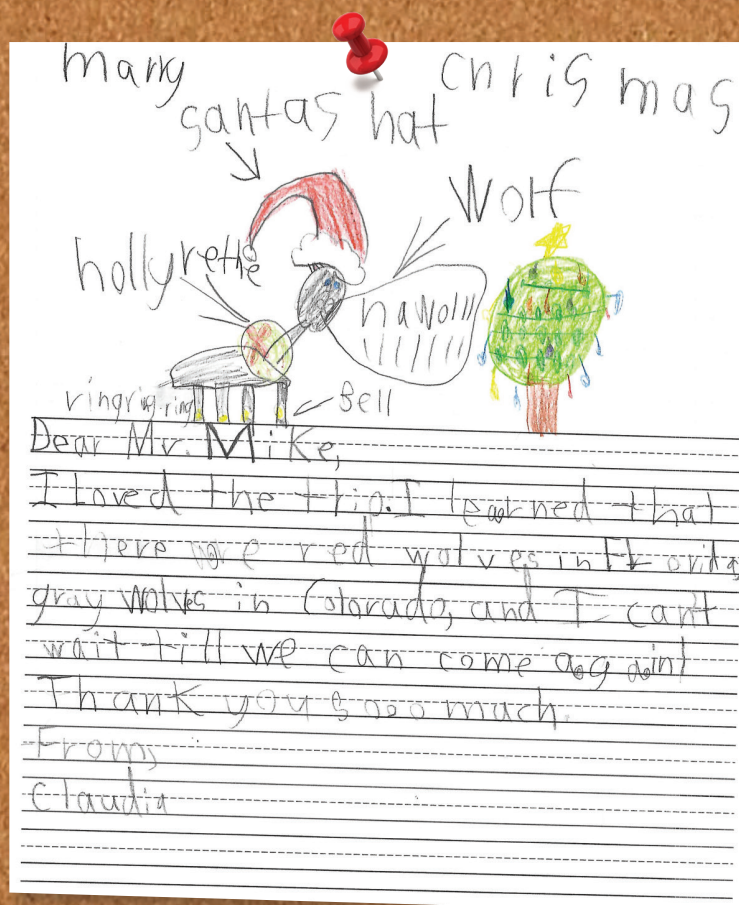 marry chrismas
santas hat
Wolf
hollyrethe
hawolll
ringring.ring
Bell
Dear Mr. Mike,
I Loved the trip. I learned that
there are red wolves in Florida,
gray wolves in Colorado, and I can't
wait till we can come again!
Thank you sooo much.
From,
Claudia